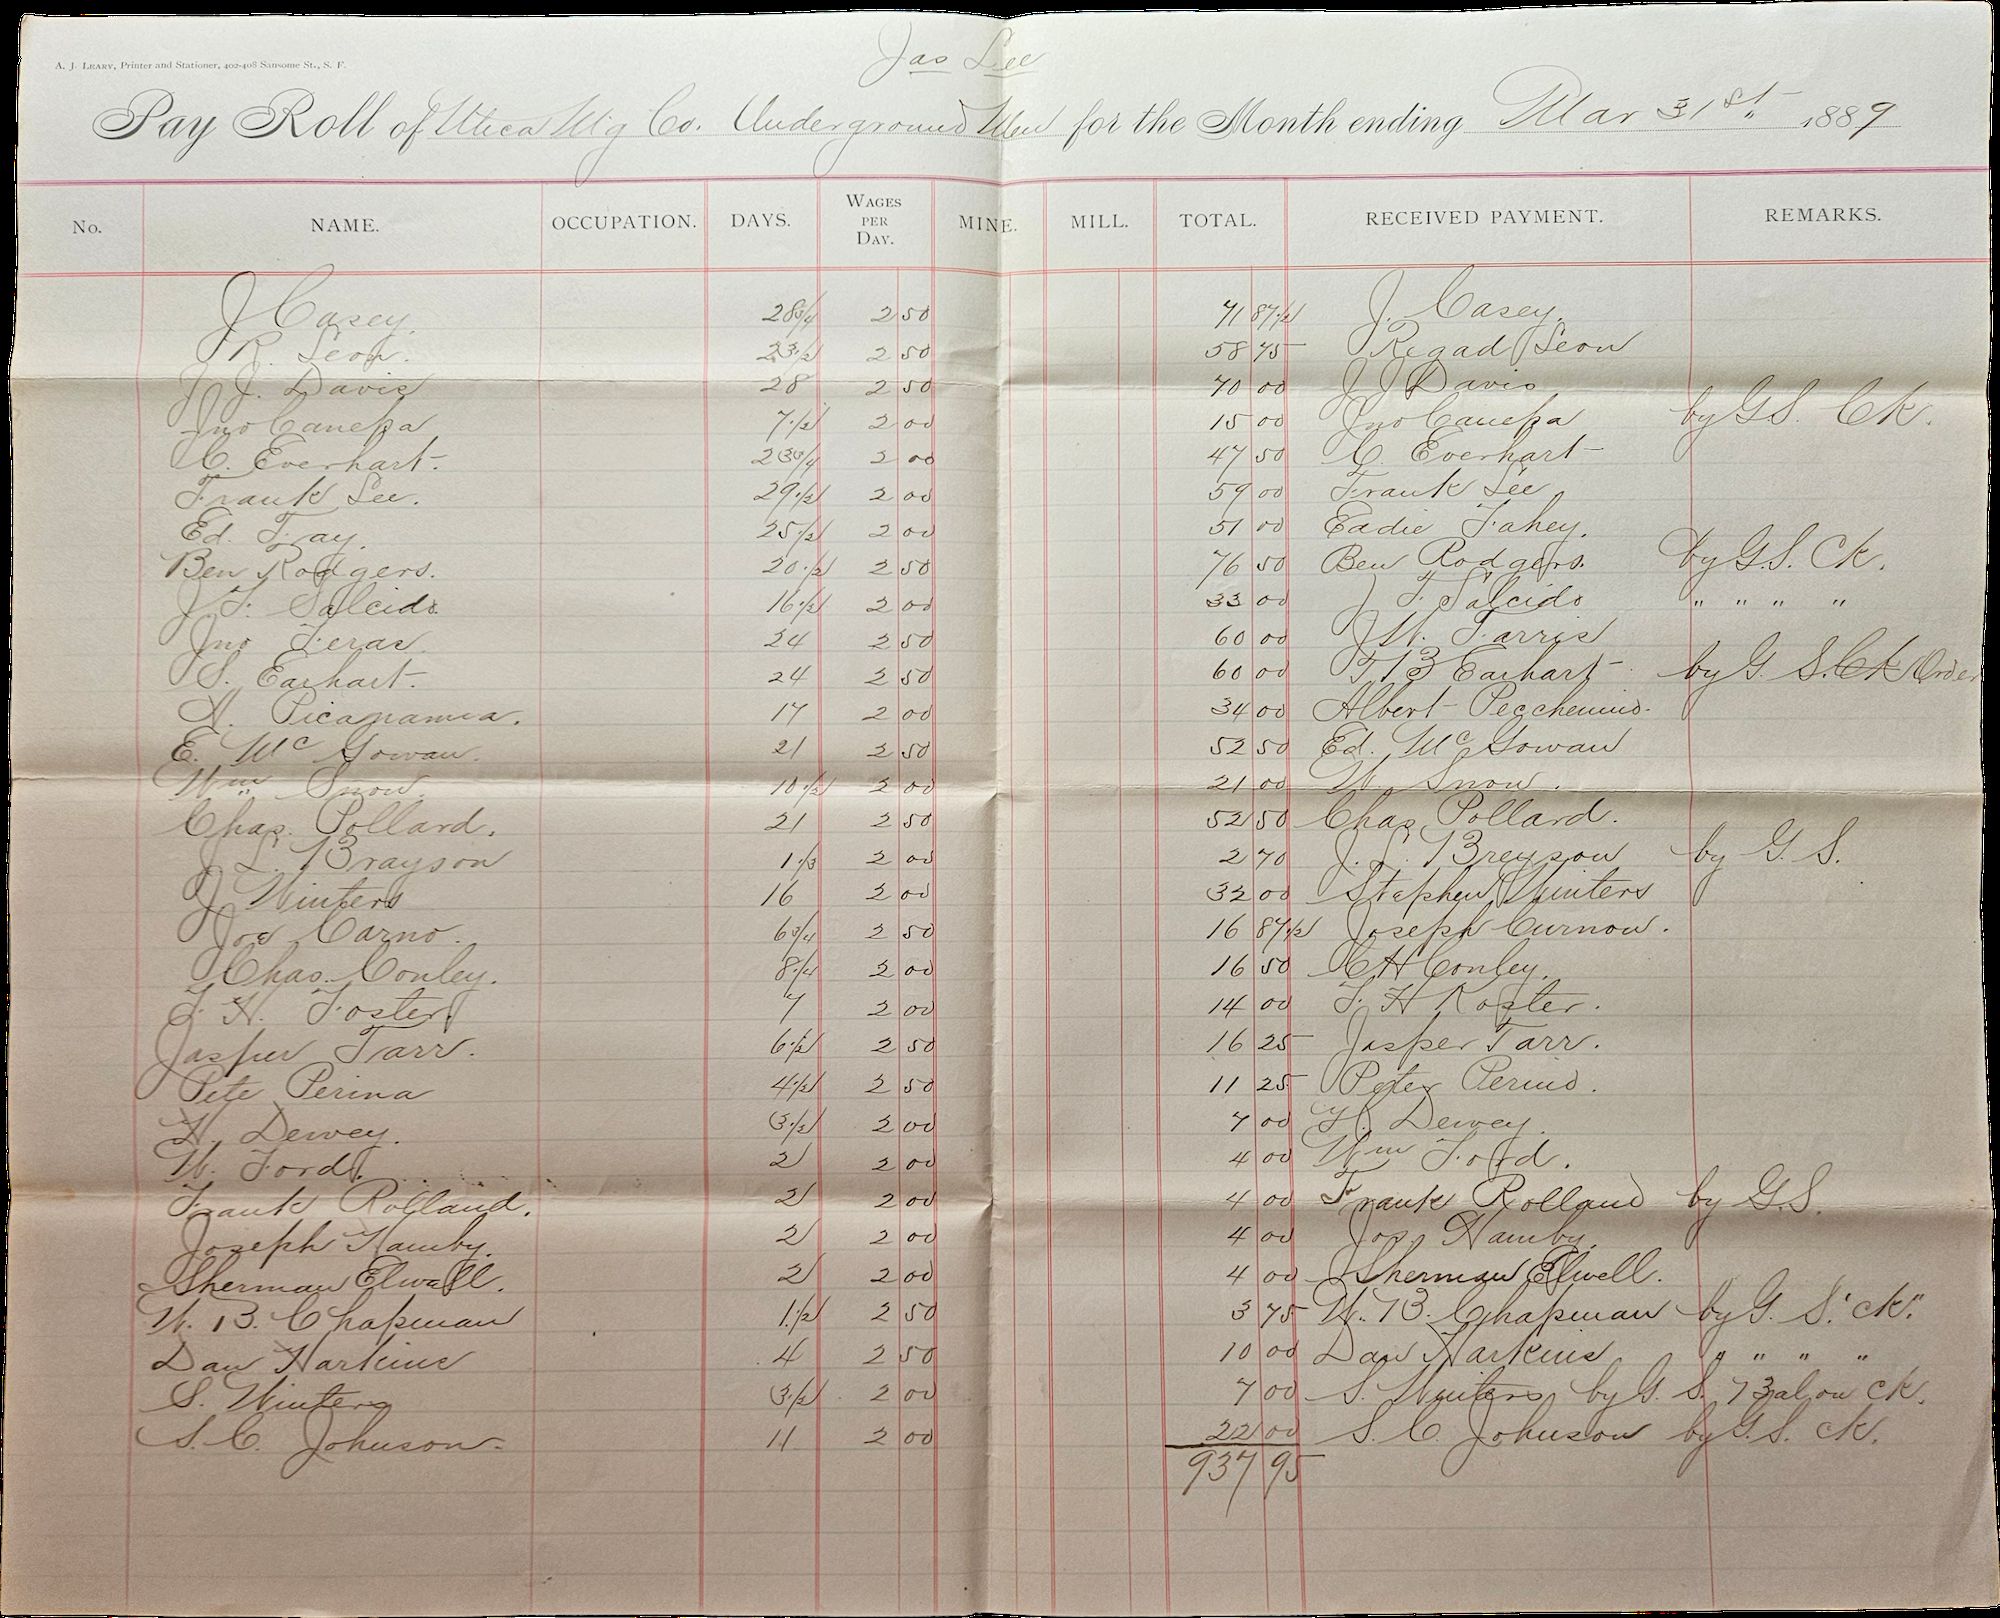 Jas Lee
A. J. Leary, Printer and Stationer, 402-408 Sansome St., S. F.
Pay Roll of Utica M'g Co. Underground Men for the Month ending Mar 31st, 1889
No. NAME. OCCUPATION. DAYS. Wages per Day. MINE. MILL. TOTAL. RECEIVED PAYMENT. REMARKS.
J Casey. 28 3/4 2 50 71 87 1/2 J. Casey.
R. Leon. 23 1/2 2 50 58 75 Regad Leon
J. J. Davis 28 2 50 70 00 J J Davis
Jno Canepa 7 1/2 2 00 15 00 Jno Canepa by G S. Ck.
C. Everhart. 23 3/4 2 00 47 50 C. Everhart
Frank Lee. 29 1/2 2 00 59 00 Frank Lee
Ed. Fray. 25 1/2 2 00 51 00 Eadie Fahey.
Ben Rodgers. 20 1/2 2 50 76 50 Ben Rodgers. by G.S. Ck.
J F. Salcido 16 1/2 2 00 33 00 J F. Salcido " " " "
Jno Feras 24 2 50 60 00 J W. Farris
S. Earhart. 24 2 50 60 00 F B Earhart by G. S. Ck Order
A. 17 2 00 34 00 Albert
E. Mc Gowan. 21 2 50 52 50 Ed. Mc Gowan
Wm Snow. 10 1/2 2 00 21 00 W. Snow.
Chas. Pollard. 21 2 50 52 50 Chas Pollard.
J. L. Brayson 1 1/3 2 00 2 70 J. L. Breyson by G. S.
J Winters 16 2 00 32 00 Stephen Winters
Joe Carno. 6 3/4 2 50 16 87 1/2 Joseph Curnow.
Chas. Conley. 8 1/4 2 00 16 50 C H Conley.
F. H. Foster 7 2 00 14 00 F. H Koster.
Jasper Tarr. 6 1/2 2 50 16 25 Jasper Tarr.
Pete Perina 4 1/2 2 50 11 25 Peter Perino.
H. Dewey. 3 1/2 2 00 7 00 H. Dewey.
W. Ford. 2 2 00 4 00 Wm Ford.
Frank Rolland. 2 2 00 4 00 Frank Rolland by G.S.
Joseph Hamby. 2 2 00 4 00 Jos. Hamby.
Sherman Elwell. 2 2 00 4 00 Sherman Elwell.
W. B. Chapman 1 1/2 2 50 3 75 W. B. Chapman by G. S. "ck."
Dan Harkins 4 2 50 10 00 Dan Harkins " " " "
S. Winters 3 1/2 2 00 7 00 S. Winters by G. S. ck.
S. C. Johnson. 11 2 00 22 00 S. C. Johnson by G. S. ck.
937 95